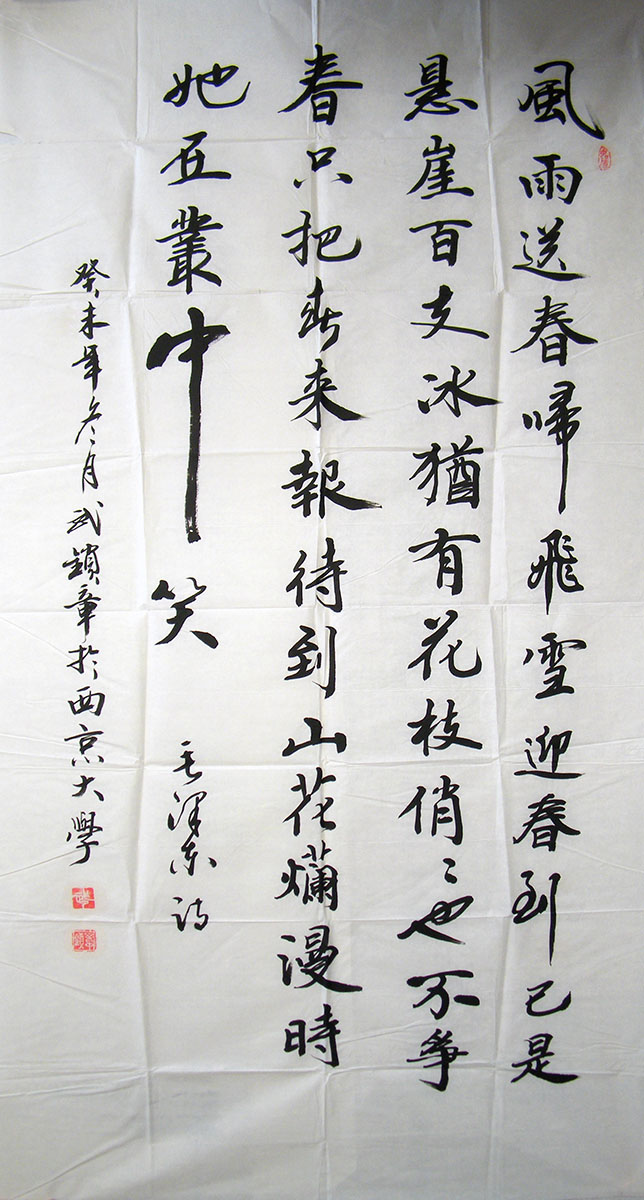 風雨送春帰飛雪迎春到已是
悬崖百丈冰猶有花枝俏〻也不爭
春只把春来報待到山花爛漫時
她在叢中笑
毛澤东诗
癸未年叁月武鎖章於西京大學